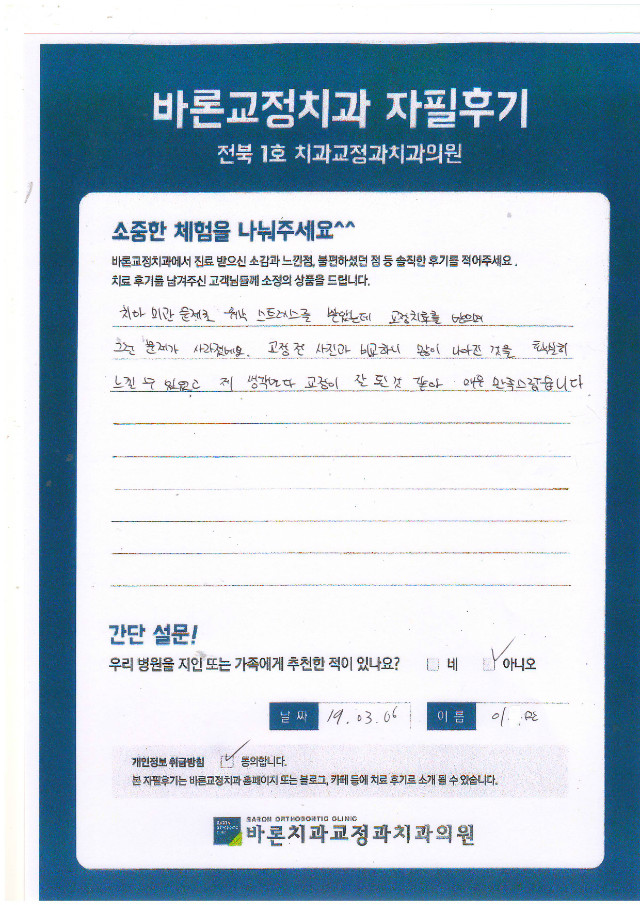 바론교정치과 자필후기
전북 1호 치과교정과치과의원
소중한 체험을 나눠주세요^^
바론교정치과에서 진료 받으신 소감과 느낀점, 불편하셨던 점 등 솔직한 후기를 적어주세요.
치료 후기를 남겨주신 고객님들께 소정의 상품을 드립니다.
치아 외관 문제로 워낙 스트레스를 받았는데 교정치료를 받으며
그런 문제가 사라졌네요. 교정 전 사진과 비교하니 많이 나아진 것을 확실히
느낄 수 있었고 제 생각보다 교정이 잘 된 것 같아 매우 만족스럽습니다
간단 설문!
우리 병원을 지인 또는 가족에게 추천한 적이 있나요? 네 아니오
날짜 19.03.06 이름 이
개인정보 취급방침 동의합니다.
본 자필후기는 바론교정치과 홈페이지 또는 블로그, 카페 등에 치료 후기로 소개 될 수 있습니다.
BARON ORTHODONTIC CLINIC
바론치과교정과치과의원